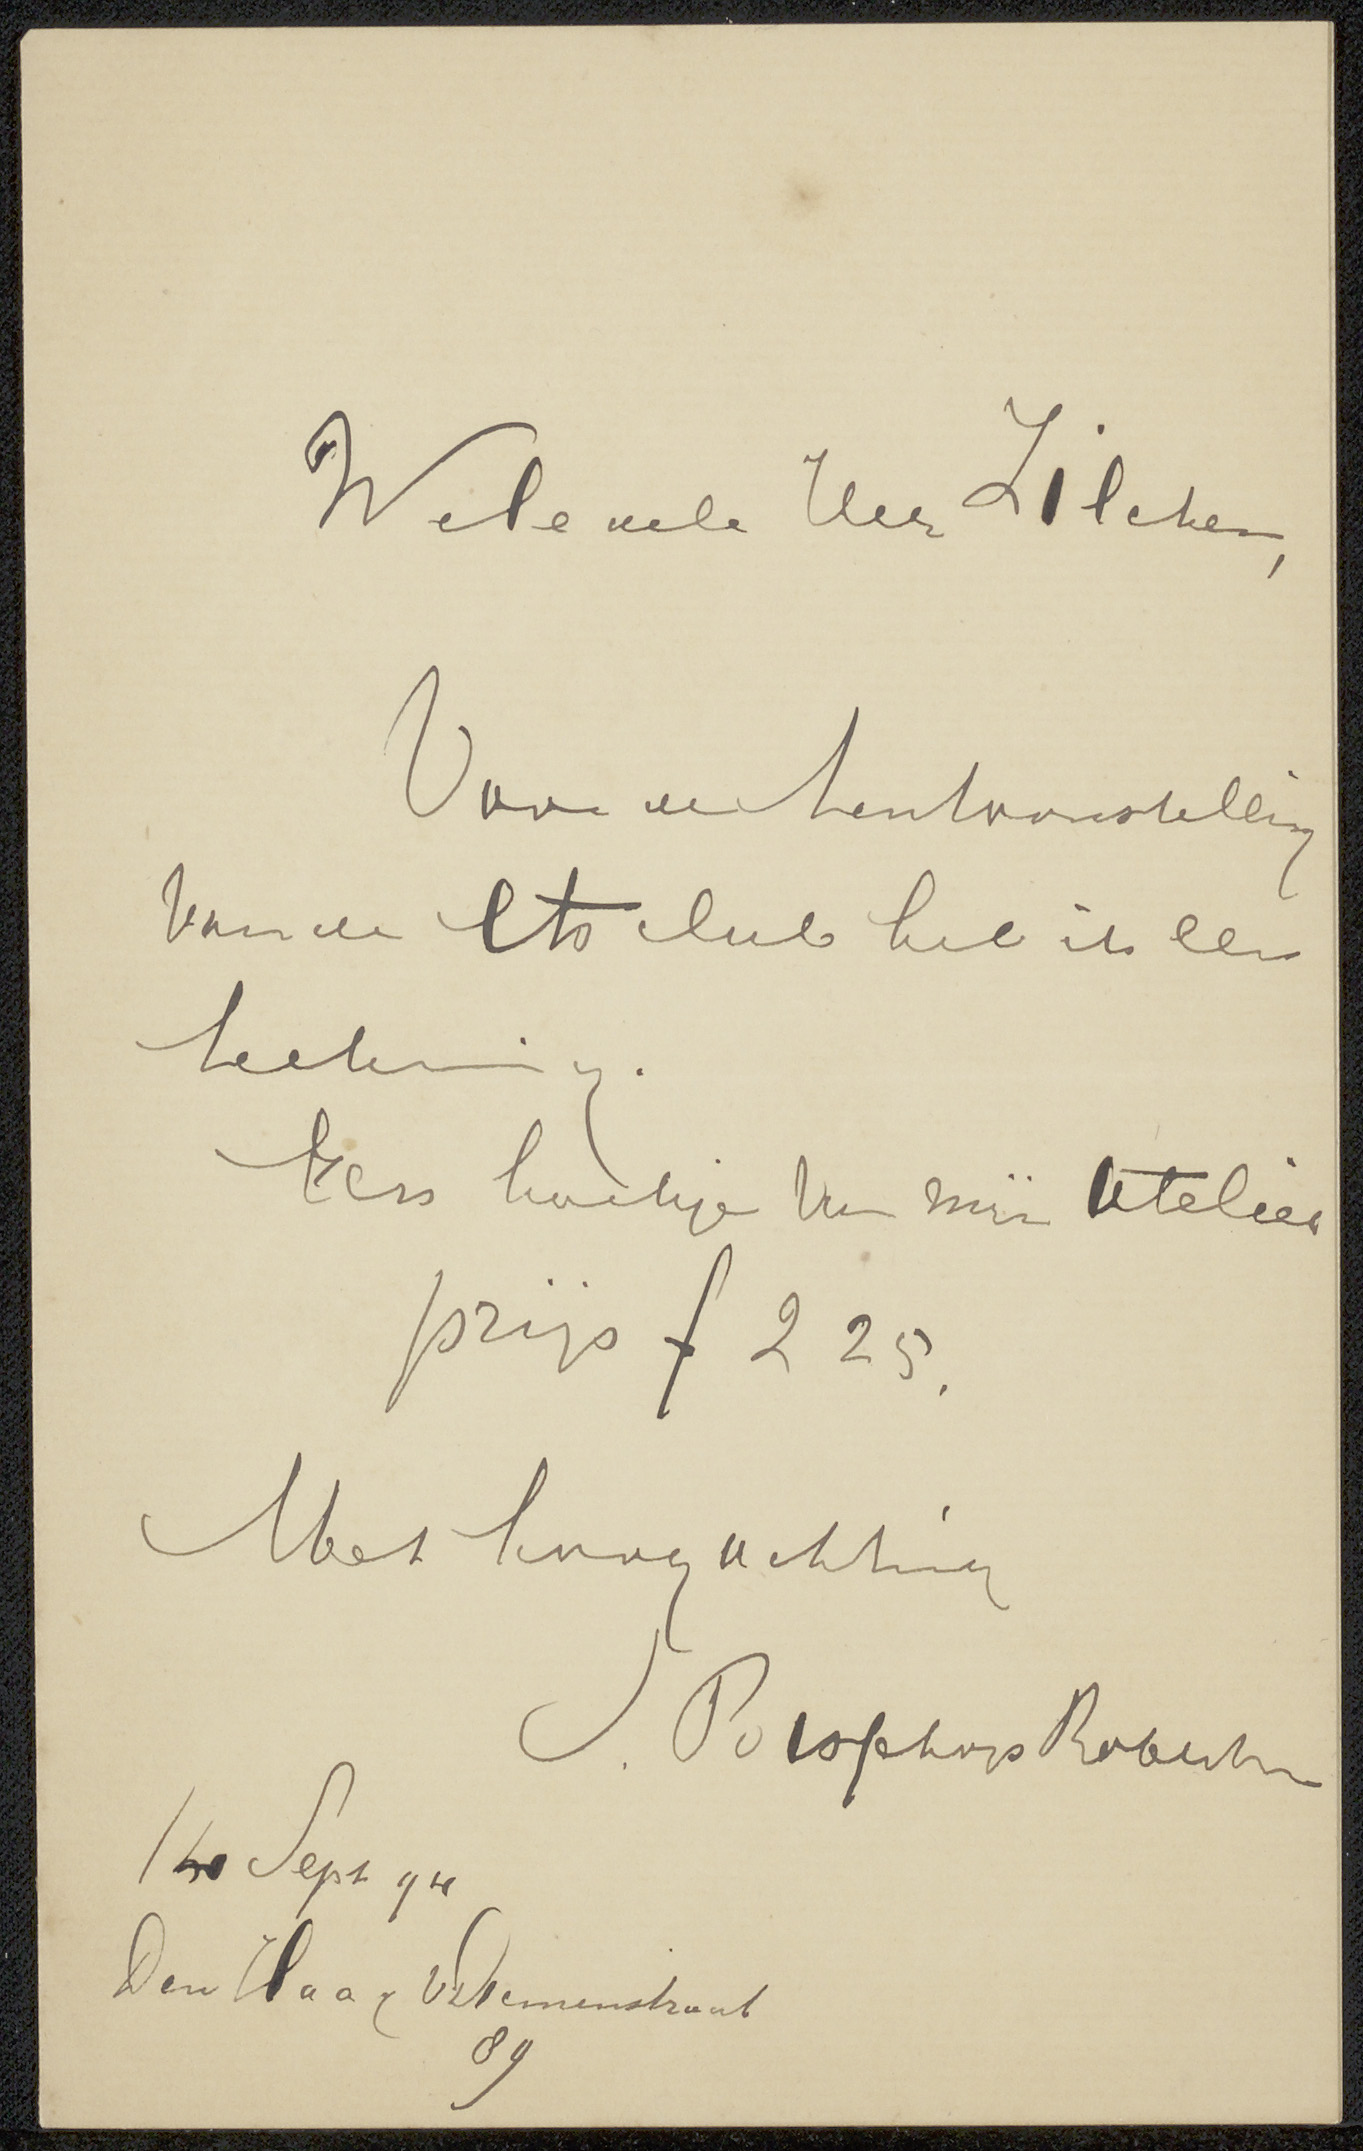 Weledele Heer Zilcken,
Voor de tentoonstelling
van de Etsclub heb ik een
teekening.
Een hoekje van mijn Atelier
prijs f 225.
Met hoogachting
S. Bisschop Robertson
14 Sept 94
Den Haag V. Diemenstraat
89